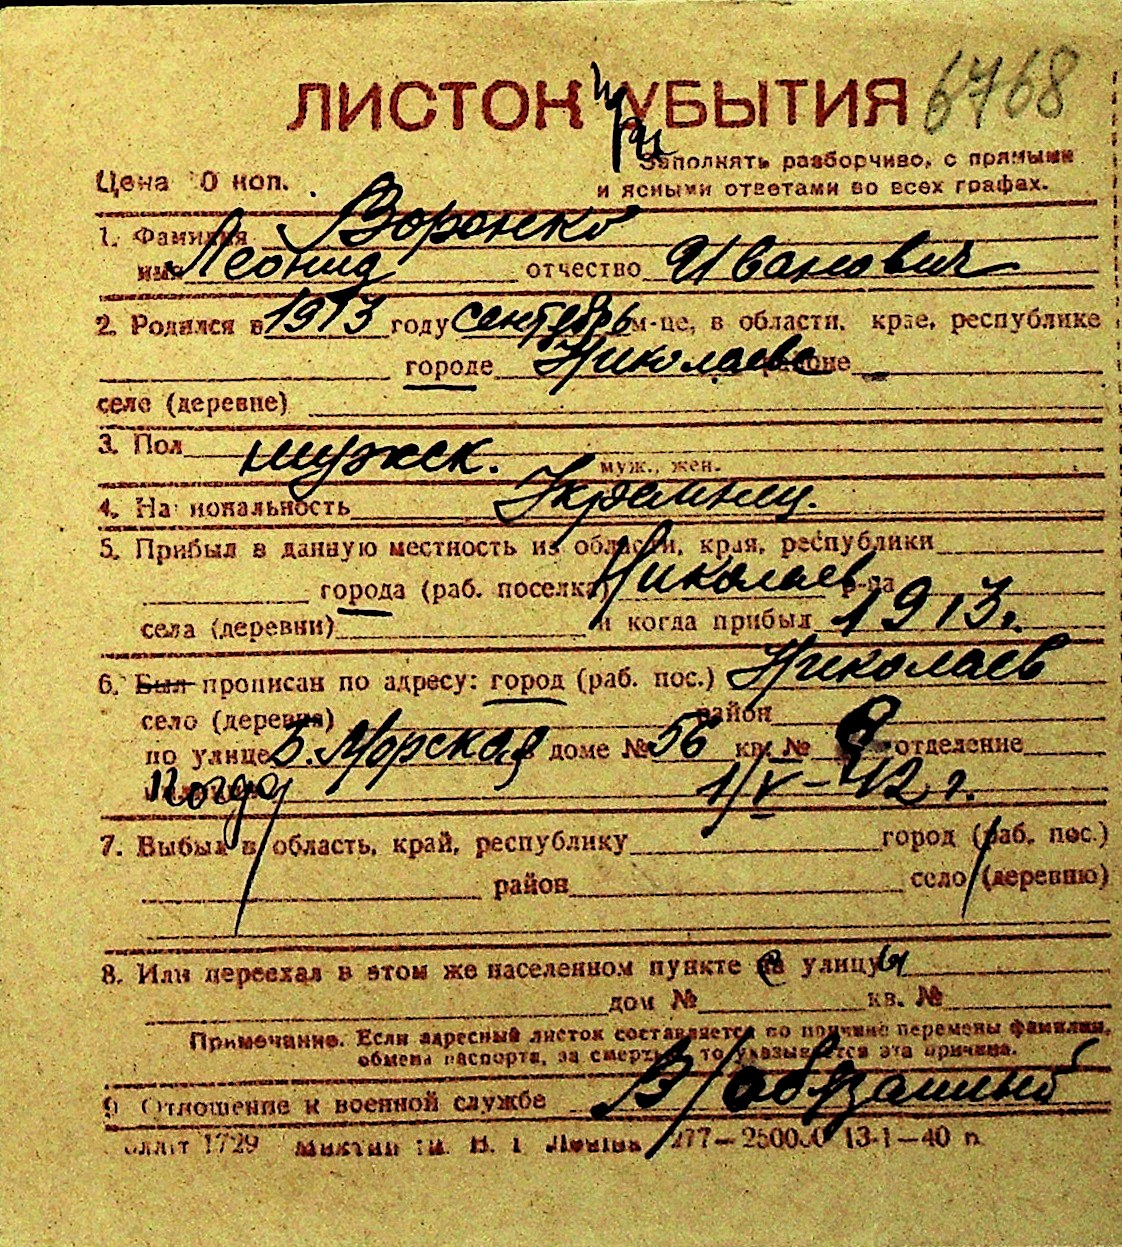 ЛИСТОК УБЫТИЯ 6768
при
Цена 0 коп.
Заполнять разборчиво, с прямыми
и ясными ответами во всех графах.
1. Фамилия Воронко
имя Леонид отчество Иванович
2. Родился в 1913 году сентябрь м-це, в области, крае, республике
городе Николаеве районе
село (деревне)
3. Пол мужск.
муж., жен.
4. Национальность Украинец.
5. Прибыл в данную местность из области, края, республики
города (раб. поселка) Николаев р-на
села (деревни) и когда прибыл 1913 г.
6. Был прописан по адресу: город (раб. пос.) Николаев
село (деревня) район
по улице Б. Морская доме № 56 кв. № 8 отделение
Когда 1/V-42 г.
7. Выбыл в область, край, республику город (раб. пос.)
район село (деревню)
8. Или переехал в этом же населенном пункте улицу
дом № кв. №
Примечание. Если адресный листок составляется по причине перемены фамилии,
обмена паспорта, за смертью, то указывается эта причина.
9. Отношение к военной службе В/обязанный
1729 277—250000 13-1—40 п.